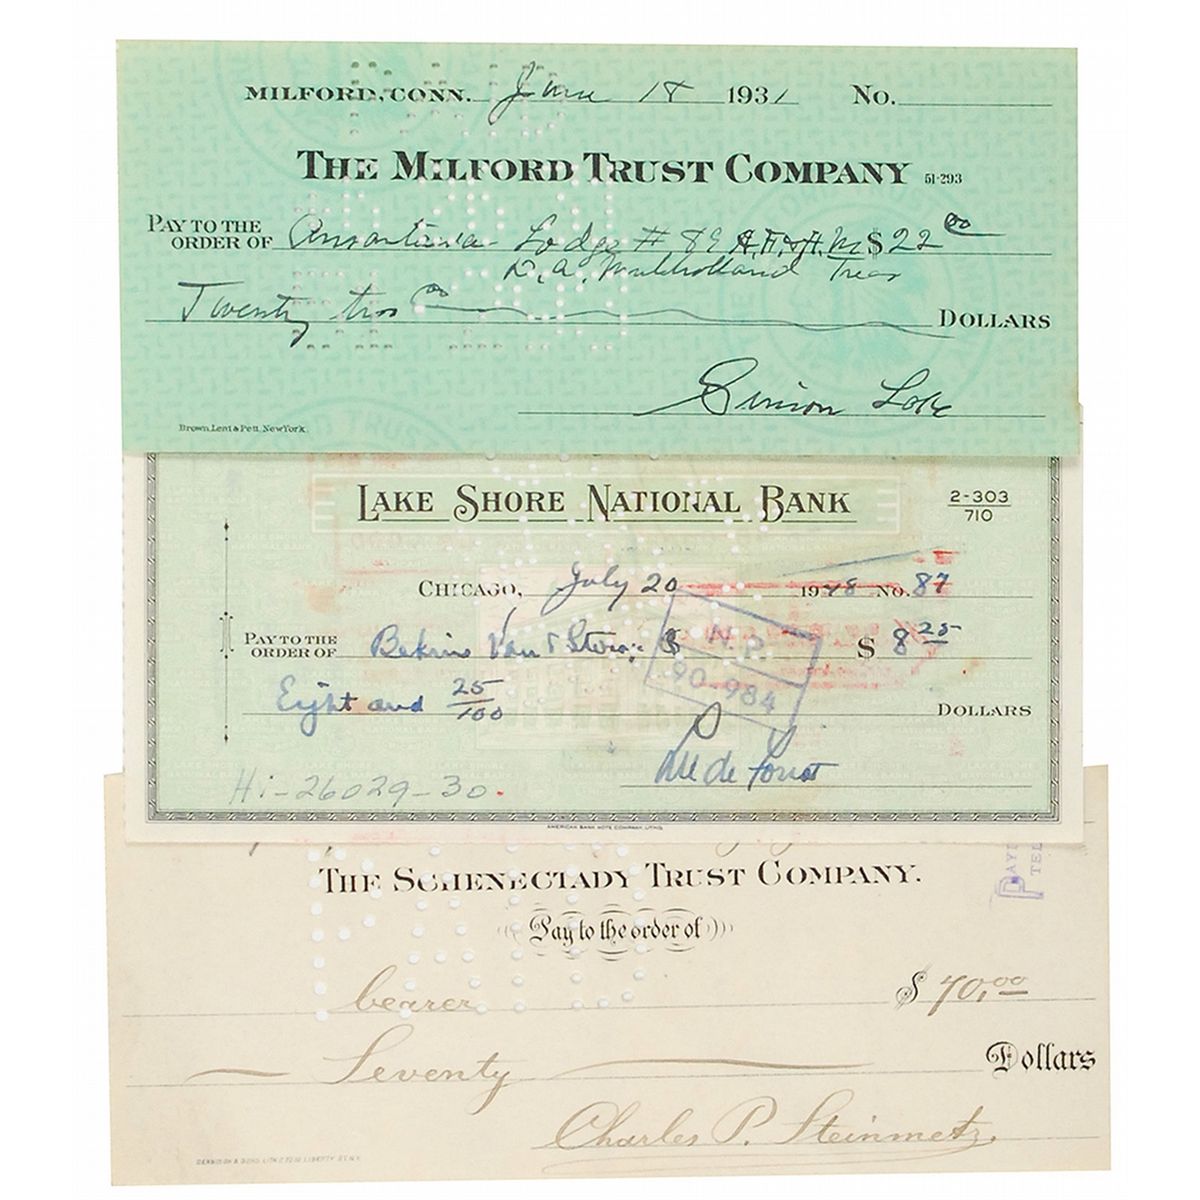 MILFORD, CONN. June 18 1931 No.
THE MILFORD TRUST COMPANY 51-293
PAY TO THE
ORDER OF Ansantawae Lodge # 89 A.F.&A.M. $ 22 00
D.A. Mulholland Treas
Twenty two 00 DOLLARS
Simon Lake
Brown, Lent & Pett, New York.
LAKE SHORE NATIONAL BANK 2-303
710
CHICAGO, July 20 1948 No. 87
PAY TO THE
ORDER OF Bekins Van & Storage $ 8 25
N.P.
90-984
Eight and 25/100 DOLLARS
Lee de Forest
Hi-26029-30.
AMERICAN BANK NOTE COMPANY, LITHO.
THE SCHENECTADY TRUST COMPANY.
Pay to the order of
bearer $ 70.00
Seventy Dollars
Charles P. Steinmetz